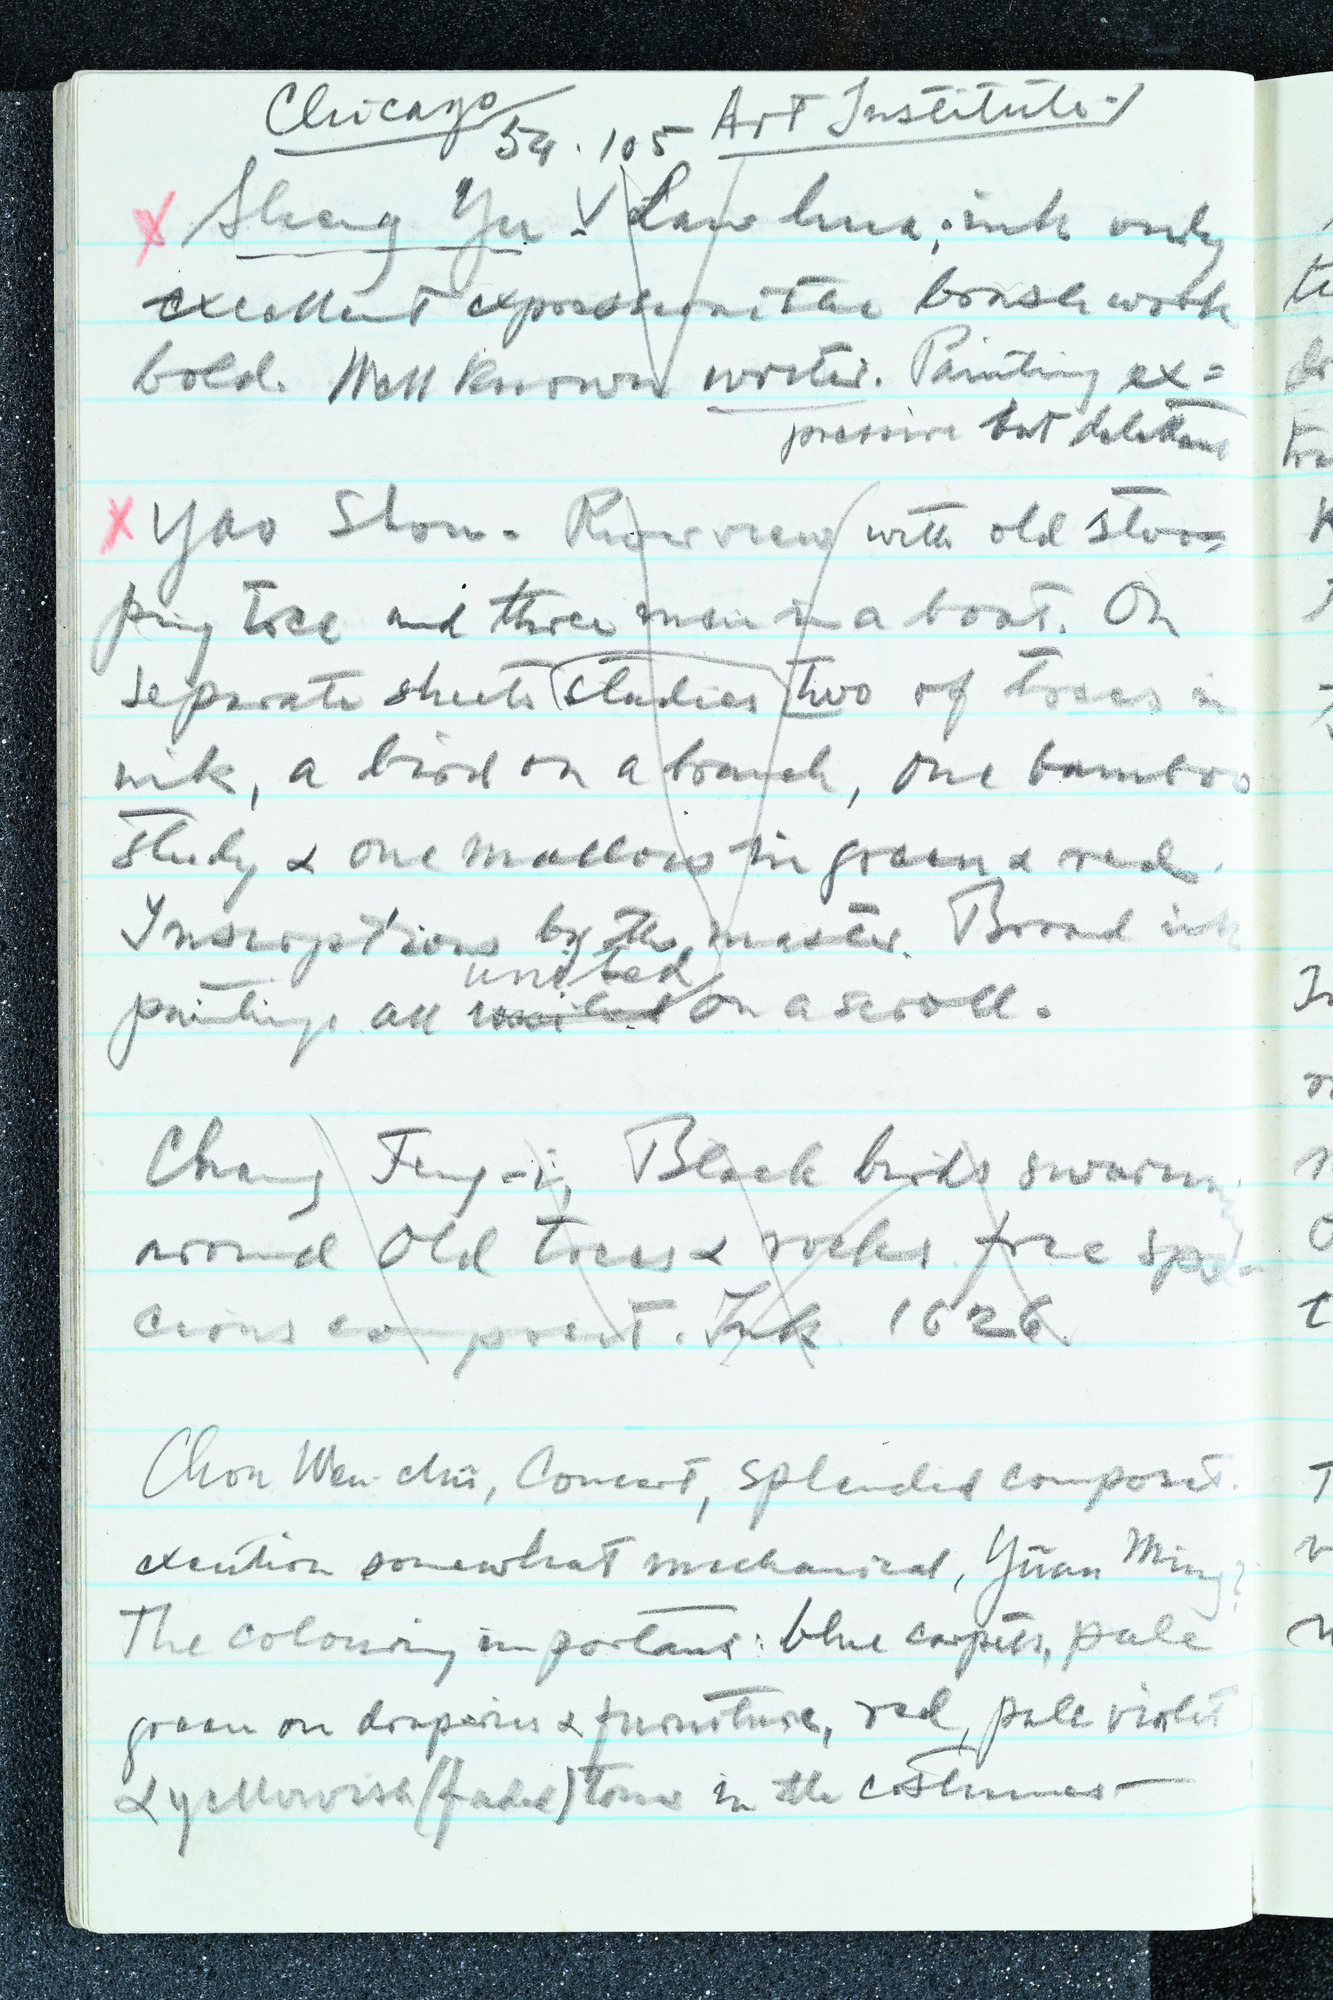 Chicago Art Institute
54.105
x Sheng Yu. V Lan hua, ink only
excellent expression the brushwork
bold. Well Known writer. Painting ex=
pressive but
x Yao Shou. River view with old stoo=
ping tree and three men in a boat. On
separate sheets (studies two of trees in
ink, a bird on a branch, one bamboo
study & one mallows in green & red.
Inscriptions by the master. Broad ink
united
paintings all on a scroll.
Chang Feng-i, Black birds swarm
around old trees & rocks free spa=
cious composit. Ink 1626
Chou Wen-chü, Concert, splendid composit.
exution somewhat mechanical, Yüan Ming?
The colouring important: blue carpets, pale
green on draperies & furniture, red, pale violet
& yellowish (faded) tones in the costumes —